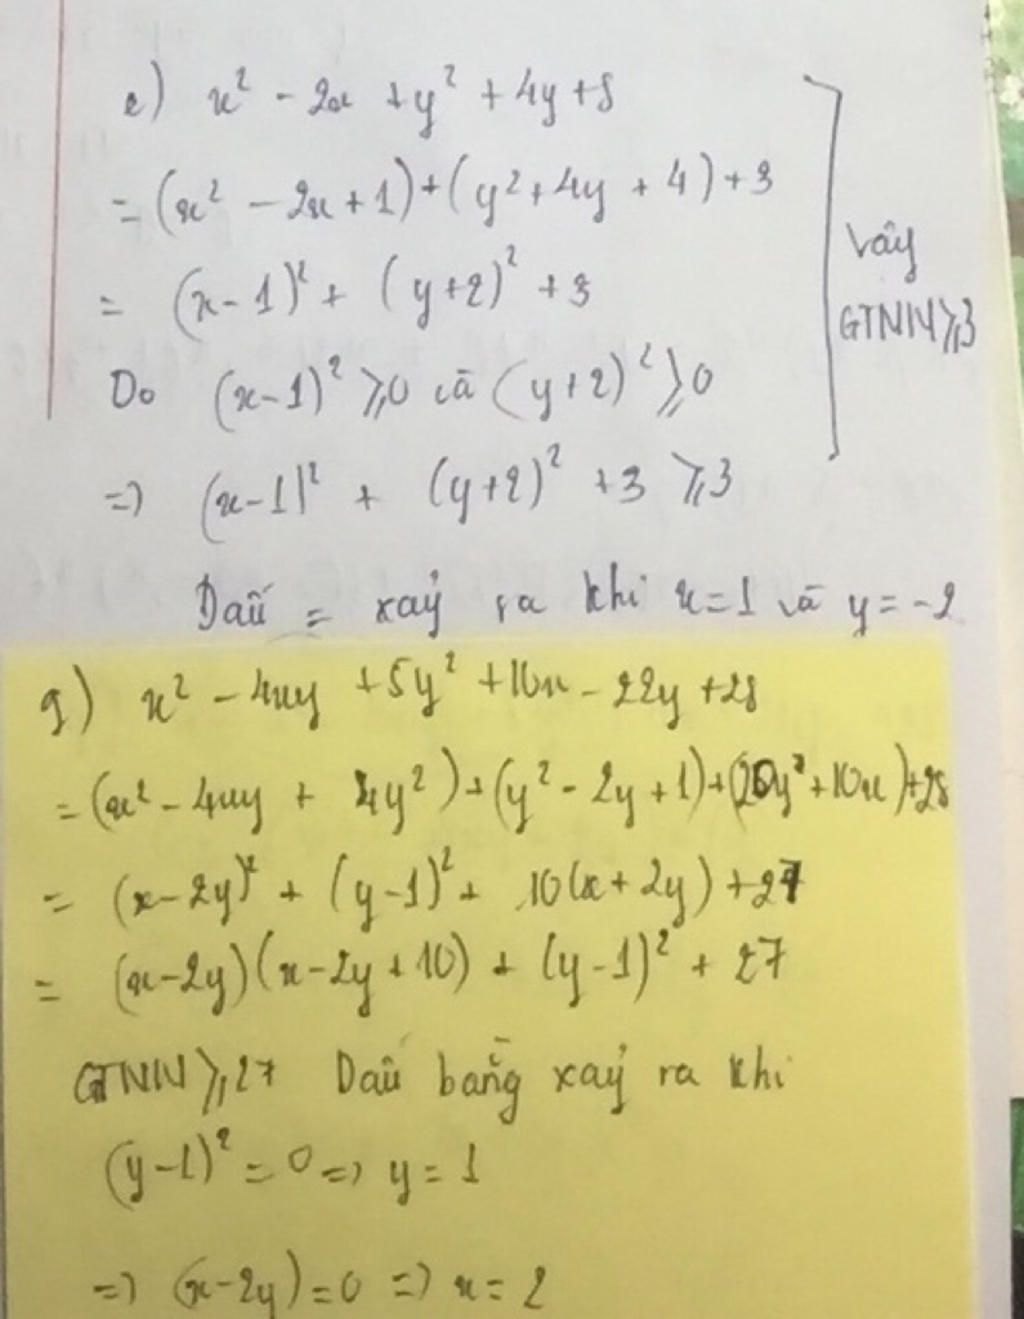 e) x² - 2x + y² + 4y + 8
= (x² - 2x + 1) + (y² + 4y + 4) + 3
= (x - 1)² + (y + 2)² + 3
Do (x - 1)² ⩾ 0 và (y + 2)² ⩾ 0
=> (x - 1)² + (y + 2)² + 3 ⩾ 3
Vậy
GTNN ⩾ 3
Dấu = xảy ra khi x = 1 và y = -2
g) x² - 4xy + 5y² + 10x - 22y + 28
= (x² - 4xy + 4y²) + (y² - 2y + 1) + (20y² + 10x) + 28
= (x - 2y)² + (y - 1)² + 10(x + 2y) + 27
= (x - 2y)(x - 2y + 10) + (y - 1)² + 27
GTNN ⩾ 27 Dấu bằng xảy ra khi
(y - 1)² = 0 => y = 1
=> (x - 2y) = 0 => x = 2